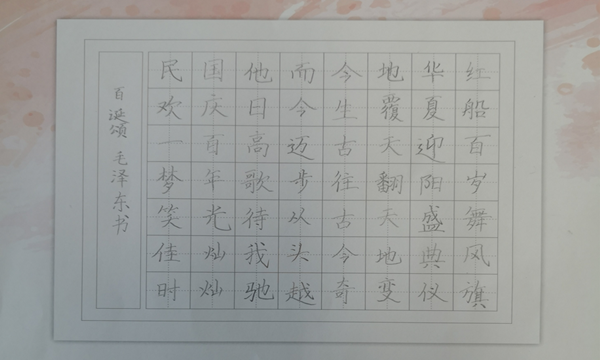 红船百岁舞风旗
华夏迎阳盛典仪
地覆天翻天地变
今生古往古今奇
而今迈步从头越
他日高歌待我驰
国庆百年光灿灿
民欢一梦笑佳时
百诞颂 毛泽东书